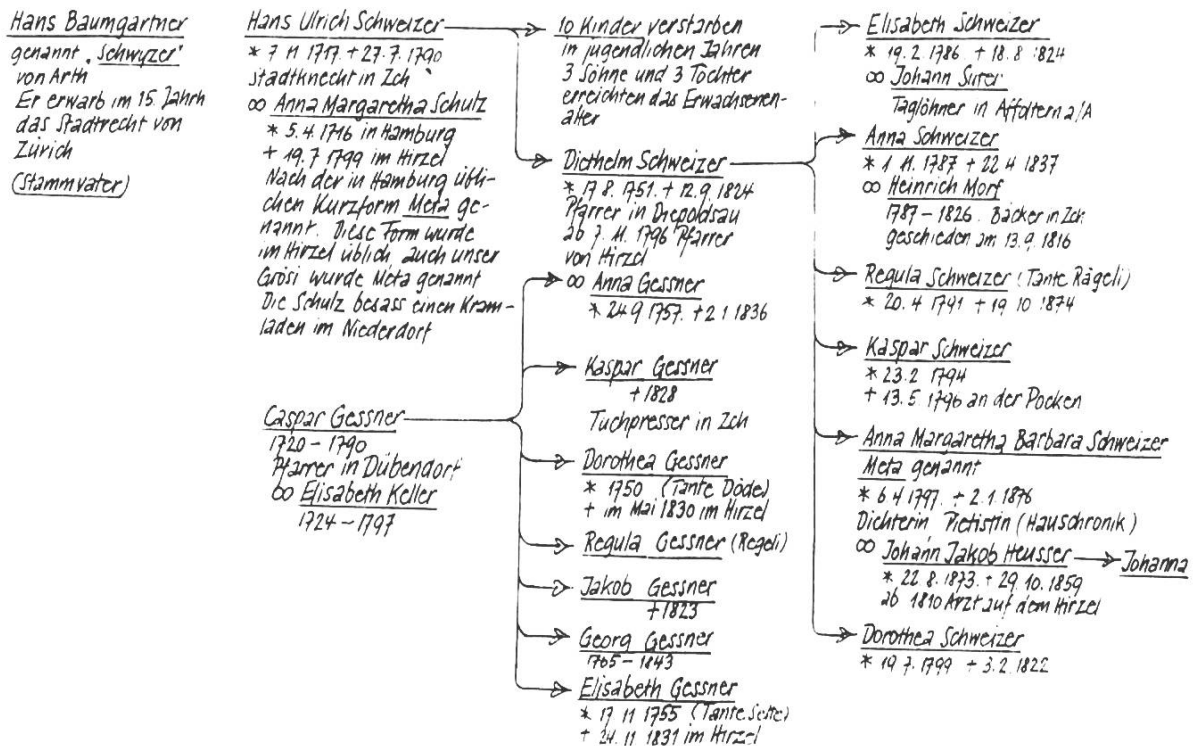 Hans Baumgartner
genannt „Schwyzer"
von Arth
Er erwarb im 15. Jahrh
das Stadtrecht von
Zürich
(Stammvater)
Hans Ulrich Schweizer
* 7 11 1717. + 27. 7. 1790
Stadtknecht in Zch
∞ Anna Margaretha Schulz
* 5. 4. 1716 in Hamburg
+ 19. 7 1799 im Hirzel
Nach der in Hamburg übli-
chen Kurzform Meta ge-
nannt. Diese Form wurde
im Hirzel üblich, auch unser
Grösi wurde Meta genannt
Die Schulz besass einen Kram-
laden im Niederdorf
Caspar Gessner
1720 – 1790
Pfarrer in Dübendorf
∞ Elisabeth Keller
1724 – 1797
10 Kinder verstarben
in jugendlichen Jahren
3 Söhne und 3 Töchter
erreichten das Erwachsenen-
alter
Diethelm Schweizer
* 17 8. 1751. + 12. 9. 1824
Pfarrer in Diepoldsau
ab 7. 11. 1796 Pfarrer
von Hirzel
∞ Anna Gessner
* 24 9 1757. + 2 1 1836
Kaspar Gessner
+ 1828
Tuchpresser in Zch
Dorothea Gessner
* 1750 (Tante Döde)
+ im Mai 1830 im Hirzel
Regula Gessner (Regeli)
Jakob Gessner
+ 1823
Georg Gessner
1765 – 1843
Elisabeth Gessner
* 17 11 1755 (Tante Sette)
+ 24. 11 1831 im Hirzel
Elisabeth Schweizer
* 19. 2. 1786 + 18. 8. 1824
∞ Johann Suter
Taglöhner in Affoltern a/A
Anna Schweizer
* 1 11. 1787 + 22 4 1837
∞ Heinrich Morf
1787 – 1826. Bäcker in Zch
geschieden am 13. 9. 1816
Regula Schweizer (Tante Rägeli)
* 20. 4 1791 + 19 10 1874
Kaspar Schweizer
* 23. 2 1794
+ 13. 5. 1796 an der Pocken
Anna Margaretha Barbara Schweizer
Meta genannt
* 6 4 1797. + 2. 1. 1876
Dichterin, Pietistin (Hauschronik)
∞ Johann Jakob Heusser Johanna
* 22. 8. 1873. + 29. 10. 1859
ab 1810 Arzt auf dem Hirzel
Dorothea Schweizer
* 19 7. 1799 + 3. 2. 1822